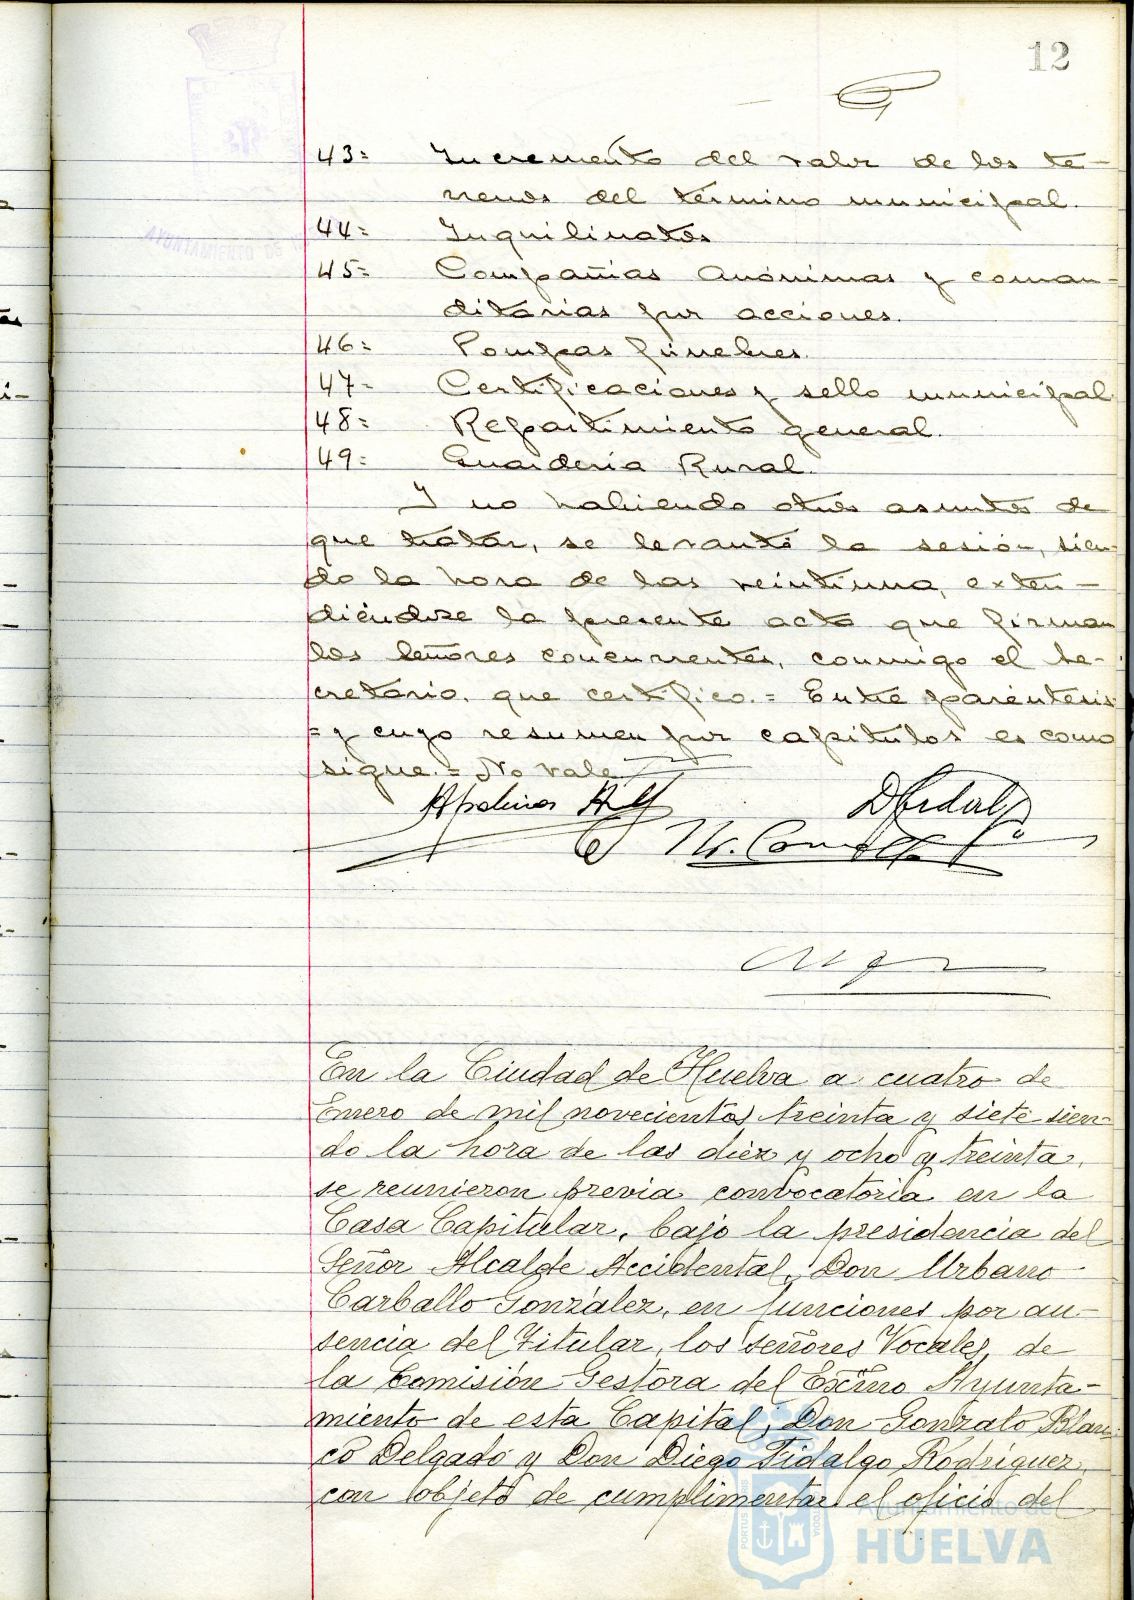 12
43= Incremento del valor de los te-
rrenos del término municipal.
44= Inquilinatos
45= Compañias Anónimas y coman-
ditarias por acciones.
46= Pompas fúnebres.
47= Certificaciones y sello municipal
48= Repartimiento general.
49= Guarderia Rural.
Y no habiendo otros asuntos de
que tratar, se levantó la sesión, sien-
do la hora de las veintiuna, exten-
diéndose la presente acta que firman
los señores concurrentes, conmigo el Se-
cretario, que certifico.= Entre paréntesis
= y cuyo resumen por capitulos es como
sigue.= No vale
En la Ciudad de Huelva a cuatro de
Enero de mil novecientos treinta y siete sien-
do la hora de las diez y ocho y treinta,
se reunieron previa convocatoria en la
Casa Capitular, bajo la presidencia del
Señor Alcalde Accidental, Don Urbano
Carballo González, en funciones por au-
sencia del Titular, los señores Vocales de
la Comisión Gestora del Excmo Ayunta-
miento de esta Capital, Don Gonzalo Blan-
co Delgado y Don Diego Fidalgo Rodríguez,
con objeto de cumplimentar el oficio del
Ayuntamiento de
HUELVA